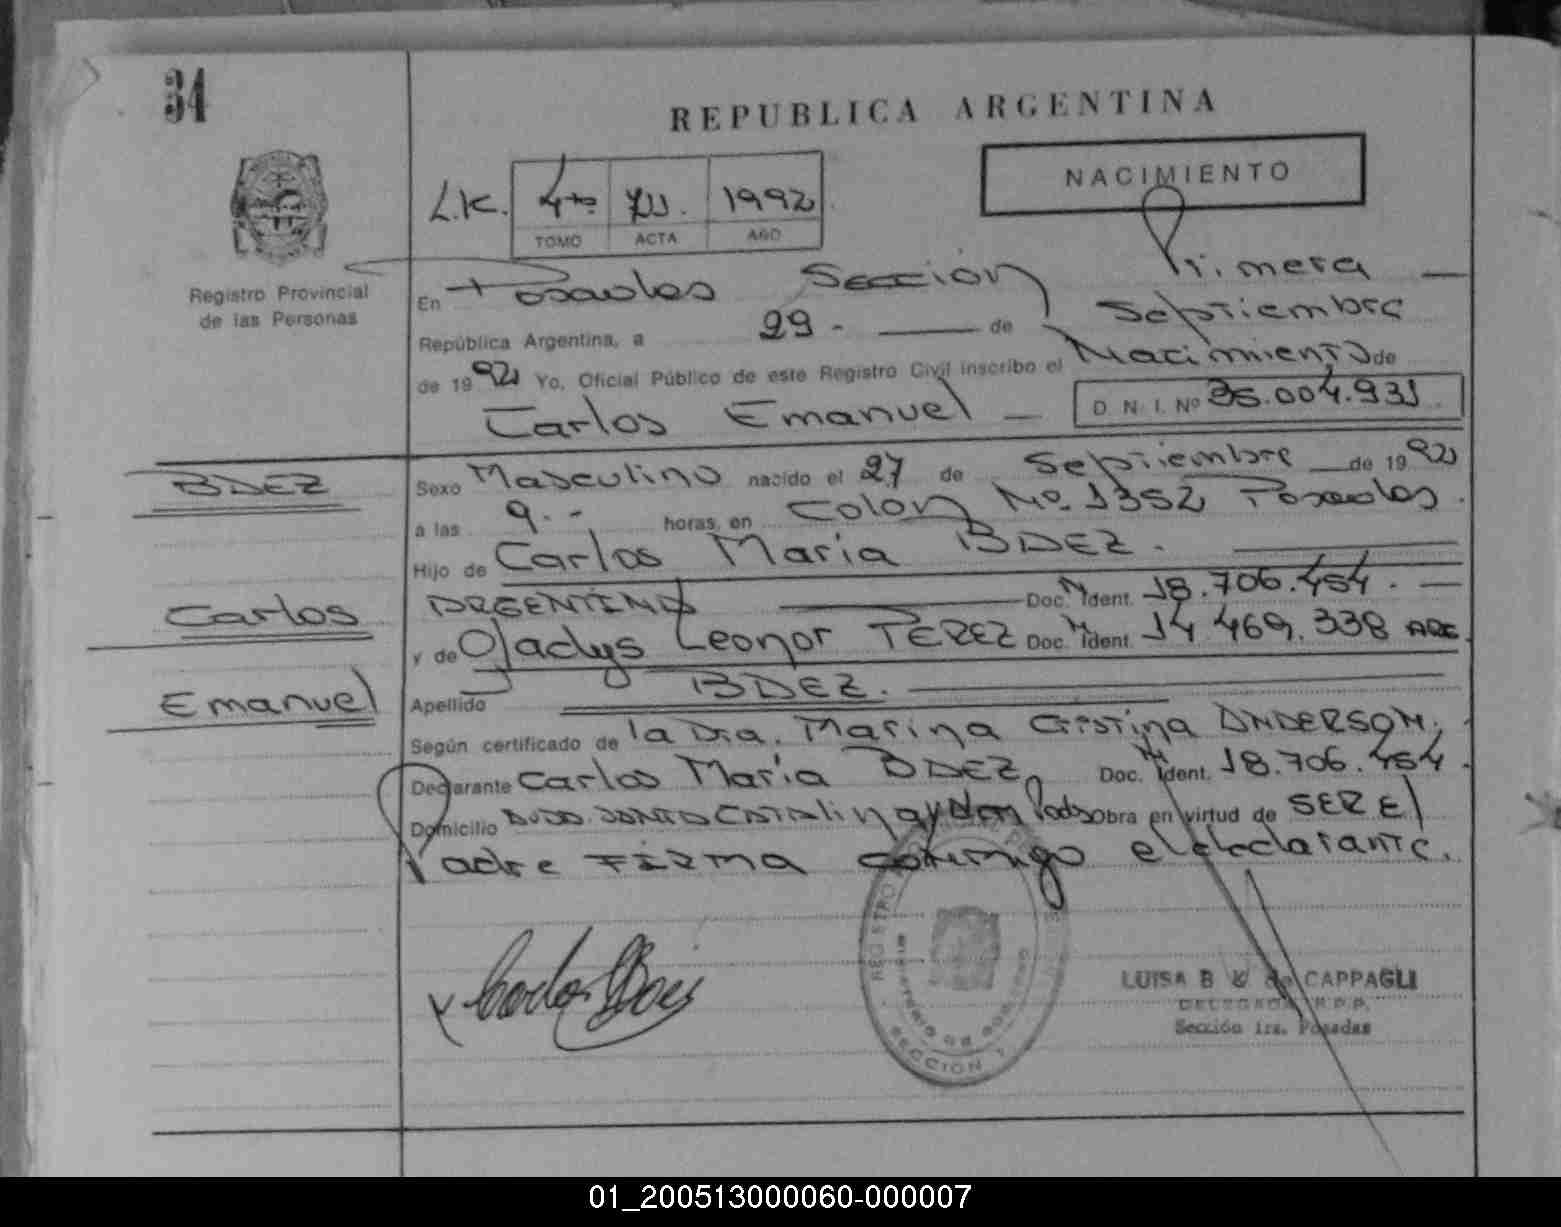 34
REPUBLICA ARGENTINA
NACIMIENTO
L.K. 4to 1992
TOMO ACTA AÑO
Registro Provincial
de las Personas
En Posadas Sección Primera
República Argentina, a 29.- de Septiembre
de 1992 Yo, Oficial Público de este Registro Civil inscribo el Nacimiento de
Carlos Emanuel D. N. I. Nº 36.004.931
BAEZ
Carlos
Emanuel
Sexo Masculino nacido el 27 de Septiembre de 1992
a las 9.- horas, en Colon Nº 1352 Posadas.
Hijo de Carlos Maria BAEZ.
ARGENTINO Doc. Ident. 18.706.454.
y de Gladys Leonor PEREZ Doc. Ident. 14.469.338 ARG
Apellido BAEZ.
Según certificado de la Dra. Marina Cristina ANDERSON.
Declarante Carlos Maria BAEZ Doc. Ident. 18.706.454.
Domicilio AVDA. SANTA CATALINA y obra en virtud de SER El
Padre FIRMA conmigo el declarante.
Carlos Baez
REGISTRO
SECCION 1
LUISA B de CAPPAGLI
DELEGADA R.P.P.
Sección 1ra. Posadas
01_200513000060-000007